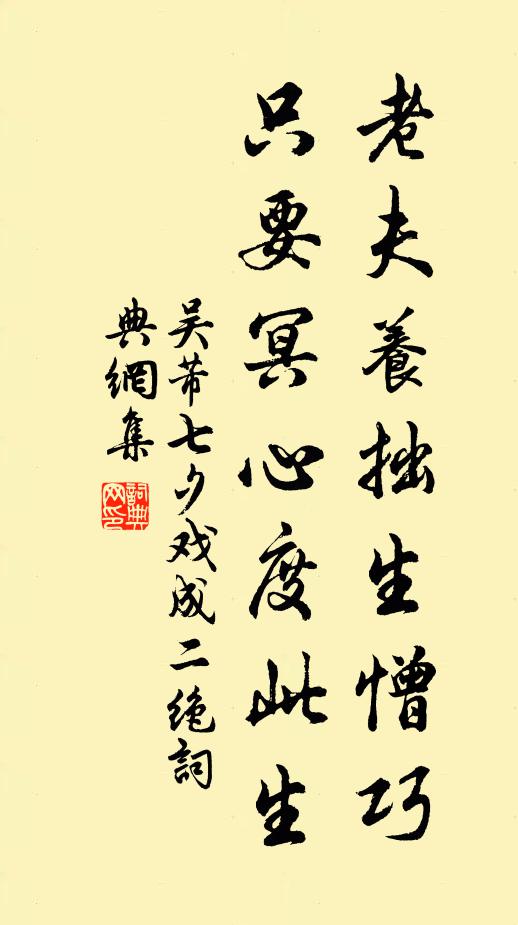 老夫養拙生憎巧
只要冥心度此生
吴芾七夕戏成二绝詞
典網集
詞典
网印